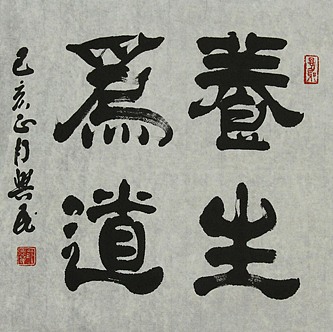 養生
為道
己亥正月興民